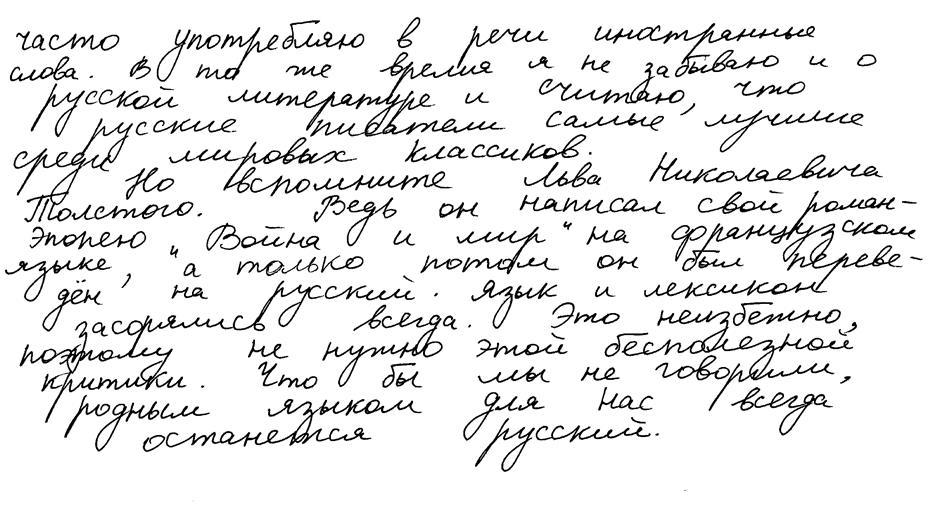 часто употребляю в речи иностранные
слова. В то же время я не забываю и о
русской литературе и считаю, что
русские писатели самые лучшие
среди мировых классиков.
Но вспомните Льва Николаевича
Толстого. Ведь он написал свой роман-
эпопею "Война и мир" на французском
языке, а только потом он был переве-
дён на русский. Язык и лексикон
засорялись всегда. Это неизбежно,
поэтому не нужно этой бесполезной
критики. Что бы мы не говорили,
родным языком для нас всегда
останется русский.